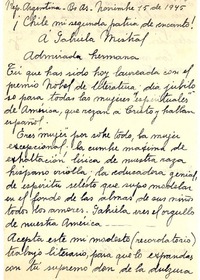 Rep. Argentina - Bs As. Noviembre 15 de 1945
Chile mi segunda patria de encanto!
A Gabriela Mistral
Admirada hermana
Tú que has sido hoy laureada con el
premio Nobel de literatura; día jubiloso
para todas las mujeres espirituales
de América, que rezan a Cristo y hablan
español.
Eres mujer por sobre todo, la mujer
excepcional; la cumbre maxima de
exaltación lírica de nuestra raza
hispano criolla; la educadora genial,
de espíritu selecto que supo modelar
en el fondo de las almas de sus niños
todos los amores. Gabriela eres el orgullo
de nuestra América
Acepta este mi modesto (recordatorio)
trabajo literario, para que lo expandas
con tu supremo don de la dulzura